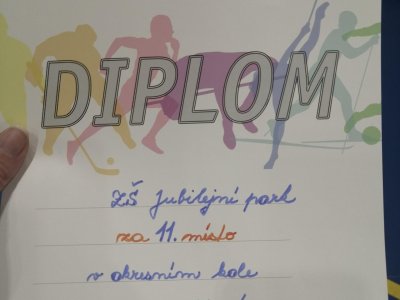 DIPLOM
ZŠ Jubilejní park
za 11. místo
v okresním kole